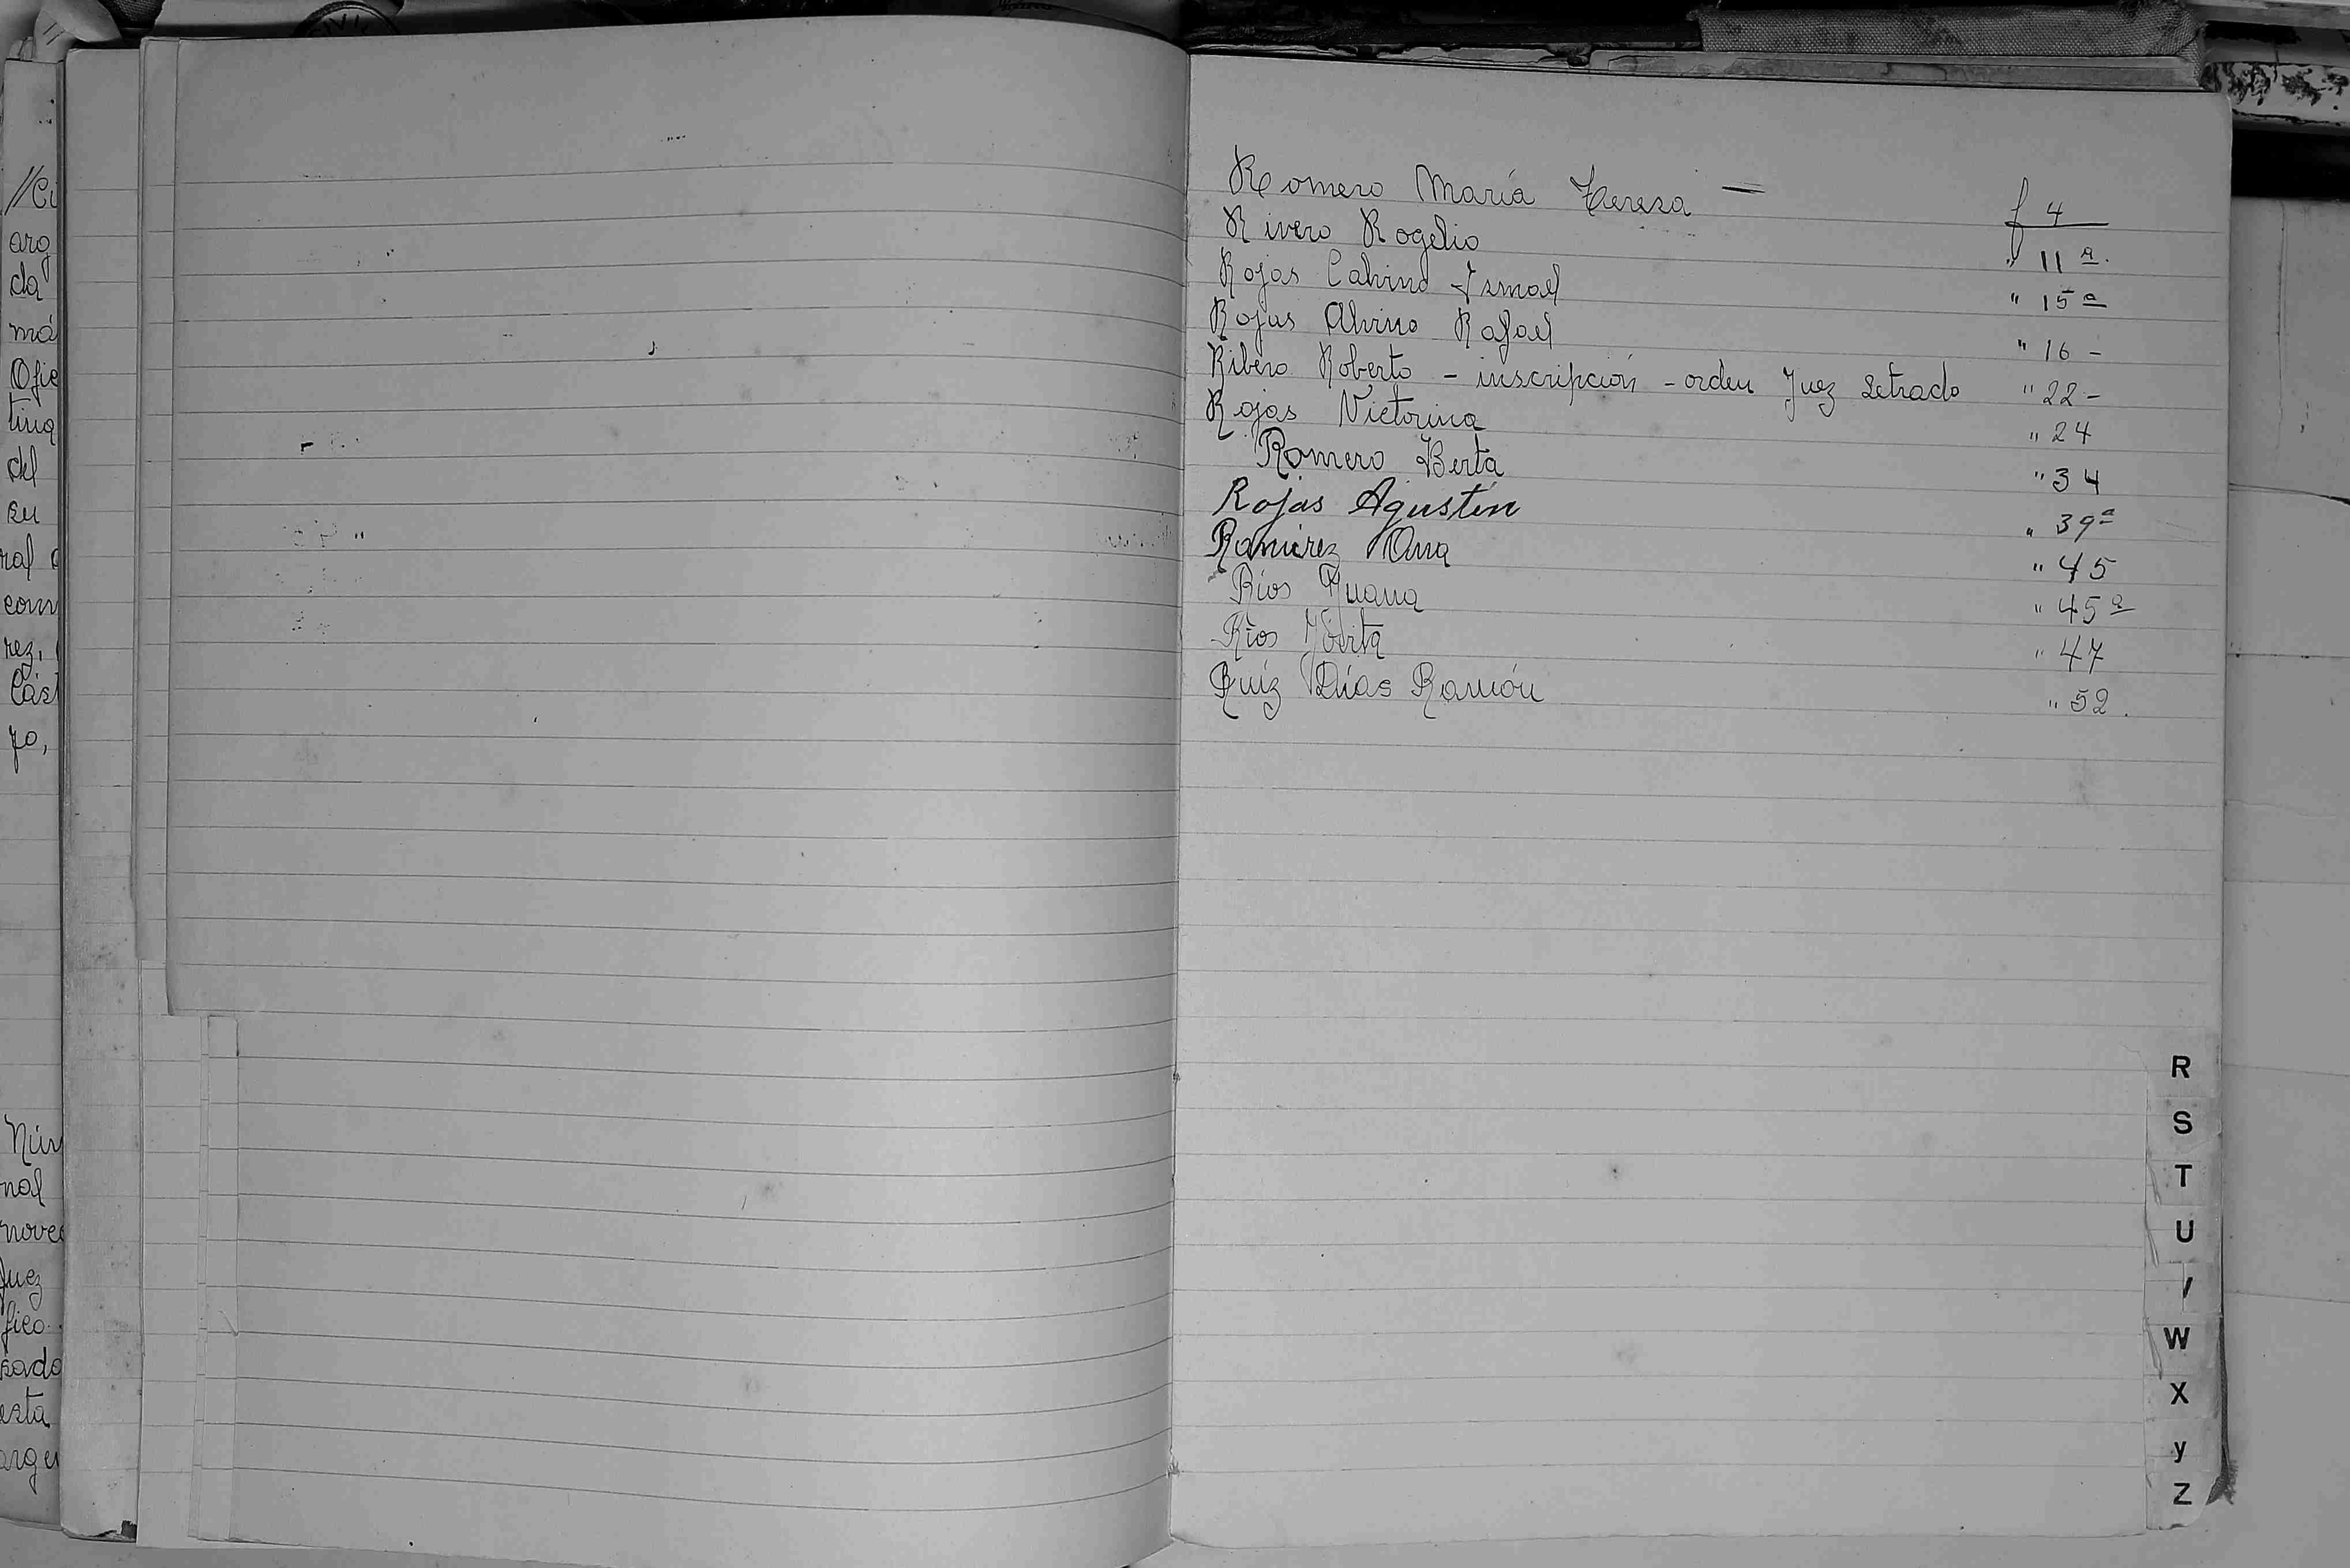 //Ci
arg
da
má
Ofic
tina
del
su
ral
com
rez,
Cást
yo,
Nún
nal
nove
Juez
fico
sado
esta
argen
Romero María Teresa — f 4
Rivero Rogelio " 11 a.
Rojas Calvino Ismael " 15 a
Rojas Alvino Rafael " 16 -
Ribero Roberto - inscripción - orden Juez Letrado " 22 -
Rojas Victorina " 24
Romero Berta " 34
Rojas Agustín " 39 a
Ramírez Ana " 45
Ríos Juana " 45 a
Ríos " 47
Ruíz Días Ramón " 52.
R
S
T
U
W
X
y
Z